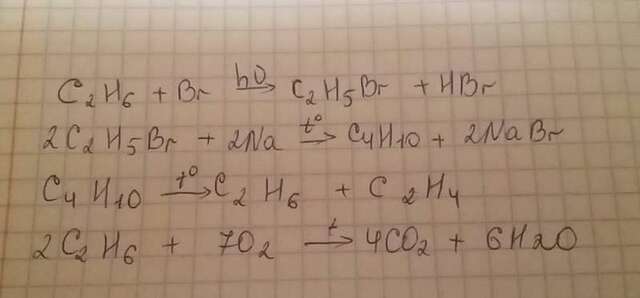 C₂H₆ + Br hυ→ C₂H₅Br + HBr
2C₂H₅Br + 2Na t°→ C₄H10 + 2NaBr
C₄H10 t°→ C₂H₆ + C₂H₄
2C₂H₆ + 7O₂ t→ 4CO₂ + 6H2O